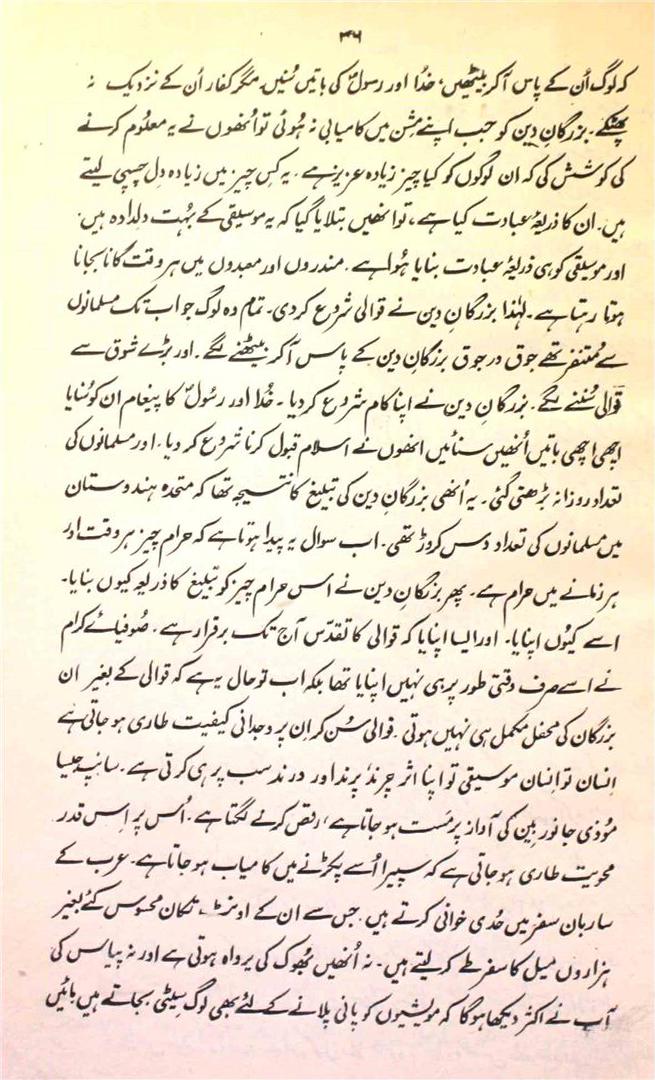 ۳۴۶
کہ لوگ اُن کے پاس آکر بیٹھیں، خدا اور رسولؐ کی باتیں سُنیں۔ مگر کفار اُن کے نزدیک نہ
پھٹکے۔ بزرگانِ دین کو جب اپنے مشن میں کامیابی نہ ہُوئی تو اُنھوں نے یہ معلُوم کرنے
کی کوشش کی کہ ان لوگوں کو کیا چیز زیادہ عزیز ہے۔ یہ کِس چیز میں زیادہ دِل چسپی لیتے
ہیں۔ ان کا ذریعۂ عبادت کیا ہے، تو انھیں بتلایا گیا کہ یہ موسیقی کے بہُت دلدادہ ہیں۔
اور موسیقی کو ہی ذریعۂ عبادت بنایا ہُوا ہے۔ مندروں اور معبدوں میں ہر وقت گانا بجانا
ہوتا رہتا ہے۔ لہٰذا بزرگانِ دین نے قوالی شروع کردی۔ تمام وہ لوگ جو اب تک مسلمانوں
سے مُتنفر تھے جوق در جوق بزرگانِ دین کے پاس آکر بیٹھنے لگے۔ اور بڑے شوق سے
قوّالی سُننے لگے۔ بزرگانِ دین نے اپنا کام شروع کردیا۔ خُدا اور رسُولؐ کا پیغام ان کو سُنایا
اچھی اچھی باتیں اُنھیں سنائیں انھوں نے اسلام قبول کرنا شروع کردیا۔ اور مسلمانوں کی
تعداد روزانہ بڑھتی گئی۔ یہ اُنھی بزرگانِ دین کی تبلیغ کا نتیجہ تھا کہ متحدہ ہندوستان
میں مسلمانوں کی تعداد دس کروڑ تھی۔ اب سوال یہ پیدا ہوتا ہے کہ حرام چیز ہر وقت اور
ہر زمانے میں حرام ہے۔ پھر بزرگانِ دین نے اس حرام چیز کو تبلیغ کا ذریعہ کیوں بنایا۔
اسے کیُوں اپنایا۔ اور ایسا اپنایا کہ قوالی کا تقدّس آج تک برقرار ہے۔ صُوفیائے کرام
نے اسے صرف وقتی طور پر ہی نہیں اپنایا تھا بلکہ اب تو حال یہ ہے کہ قوالی کے بغیر ان
بزرگان کی محفل مکمل ہی نہیں ہوتی۔ قوالی سُن کر اِن پر وجدانی کیفیت طاری ہو جاتی ہے
اِنسان تو اِنسان موسیقی تو اپنا اثر چرند پرند اور درند سب پر ہی کرتی ہے۔ سانپ جیسا
مُوذی جانور بین کی آواز پر مَست ہو جاتا ہے، رقص کرنے لگتا ہے۔ اُس پر اِس قدر
محویت طاری ہو جاتی ہے کہ سپیرا اُسے پکڑنے میں کامیاب ہو جاتا ہے۔ عرب کے
ساربان سفر میں حُدی خوانی کرتے ہیں جس سے ان کے اونٹ تکان محسوس کئے بغیر
ہزاروں میل کا سفر طے کر لیتے ہیں۔ نہ اُنھیں بھُوک کی پرواہ ہوتی ہے اور نہ پیاس کی
آپ نے اکثر دیکھا ہوگا کہ مویشیوں کو پانی پلانے کے لئے بھی لوگ سِیٹی بجاتے ہیں باتیں